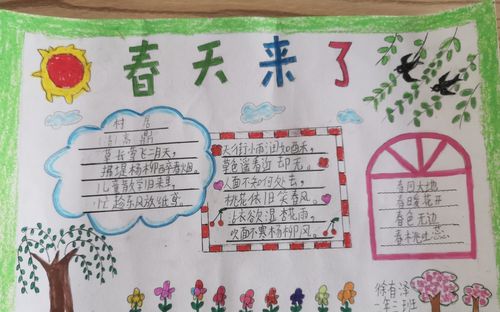 春天来了
村居
清 高鼎
草长莺飞二月天，
拂堤杨柳醉春烟。
儿童散学归来早，
忙趁东风放纸鸢。
天街小雨润如酥，
草色遥看近却无。
人面不知何处去，
桃花依旧笑春风。
沾衣欲湿杏花雨，
吹面不寒杨柳风。
春回大地
春暖花开
春色无边
春木
徐有泽
一年二班